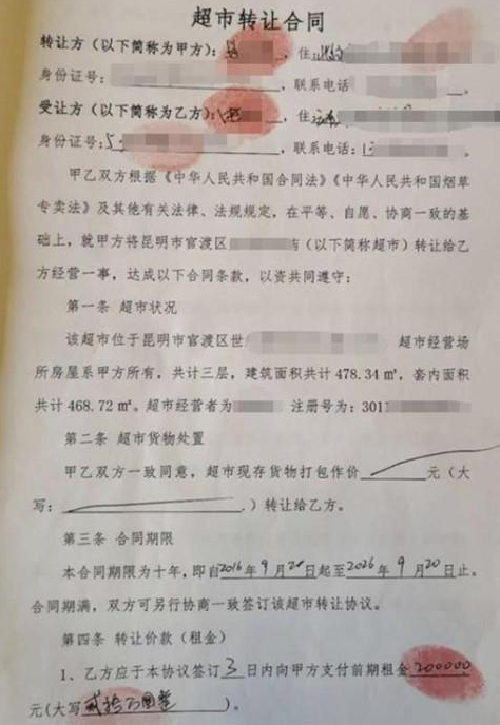 超市转让合同
转让方（以下简称为甲方）： ，住
身份证号： ，联系电话 。
受让方（以下简称为乙方）： ，住
身份证号：5 ，联系电话：1 。
甲乙双方根据《中华人民共和国合同法》《中华人民共和国烟草
专卖法》及其他有关法律、法规规定，在平等、自愿、协商一致的基
础上，就甲方将昆明市官渡区 （以下简称超市）转让给乙
方经营一事，达成以下合同条款，以资共同遵守：
第一条 超市状况
该超市位于昆明市官渡区世 超市经营场
所房屋系甲方所有，共计三层，建筑面积共计 478.34 ㎡，套内面积
共计 468.72 ㎡。超市经营者为 注册号为：3012
第二条 超市货物处置
甲乙双方一致同意，超市现存货物打包作价 元（大
写： ）转让给乙方。
第三条 合同期限
本合同期限为十年，即自2016年9月20日起至2026年9月20日止。
合同期满，双方可另行协商一致签订该超市转让协议。
第四条 转让价款（租金）
1、乙方应于本协议签订3日内向甲方支付前期租金200000
元（大写贰拾万圆整）。